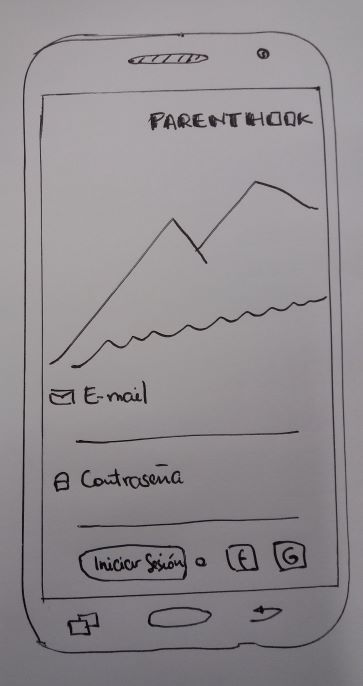 PARENTHOOK
E-mail
Contraseña
Iniciar Sesión o f G